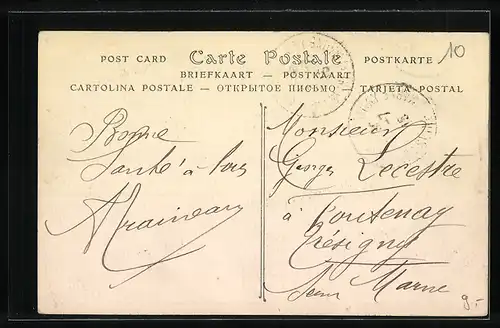 POST CARD Carte Postale POSTKARTE
BRIEFKAART — POSTKAART
CARTOLINA POSTALE — ОТКРЫТОЕ ПИСЬМО — TARJETA POSTAL
10
Bonne
Santé à tous
Monsieur
Georges Lecestre
à Fontenay
Trésigny
Seine Marne
9.-